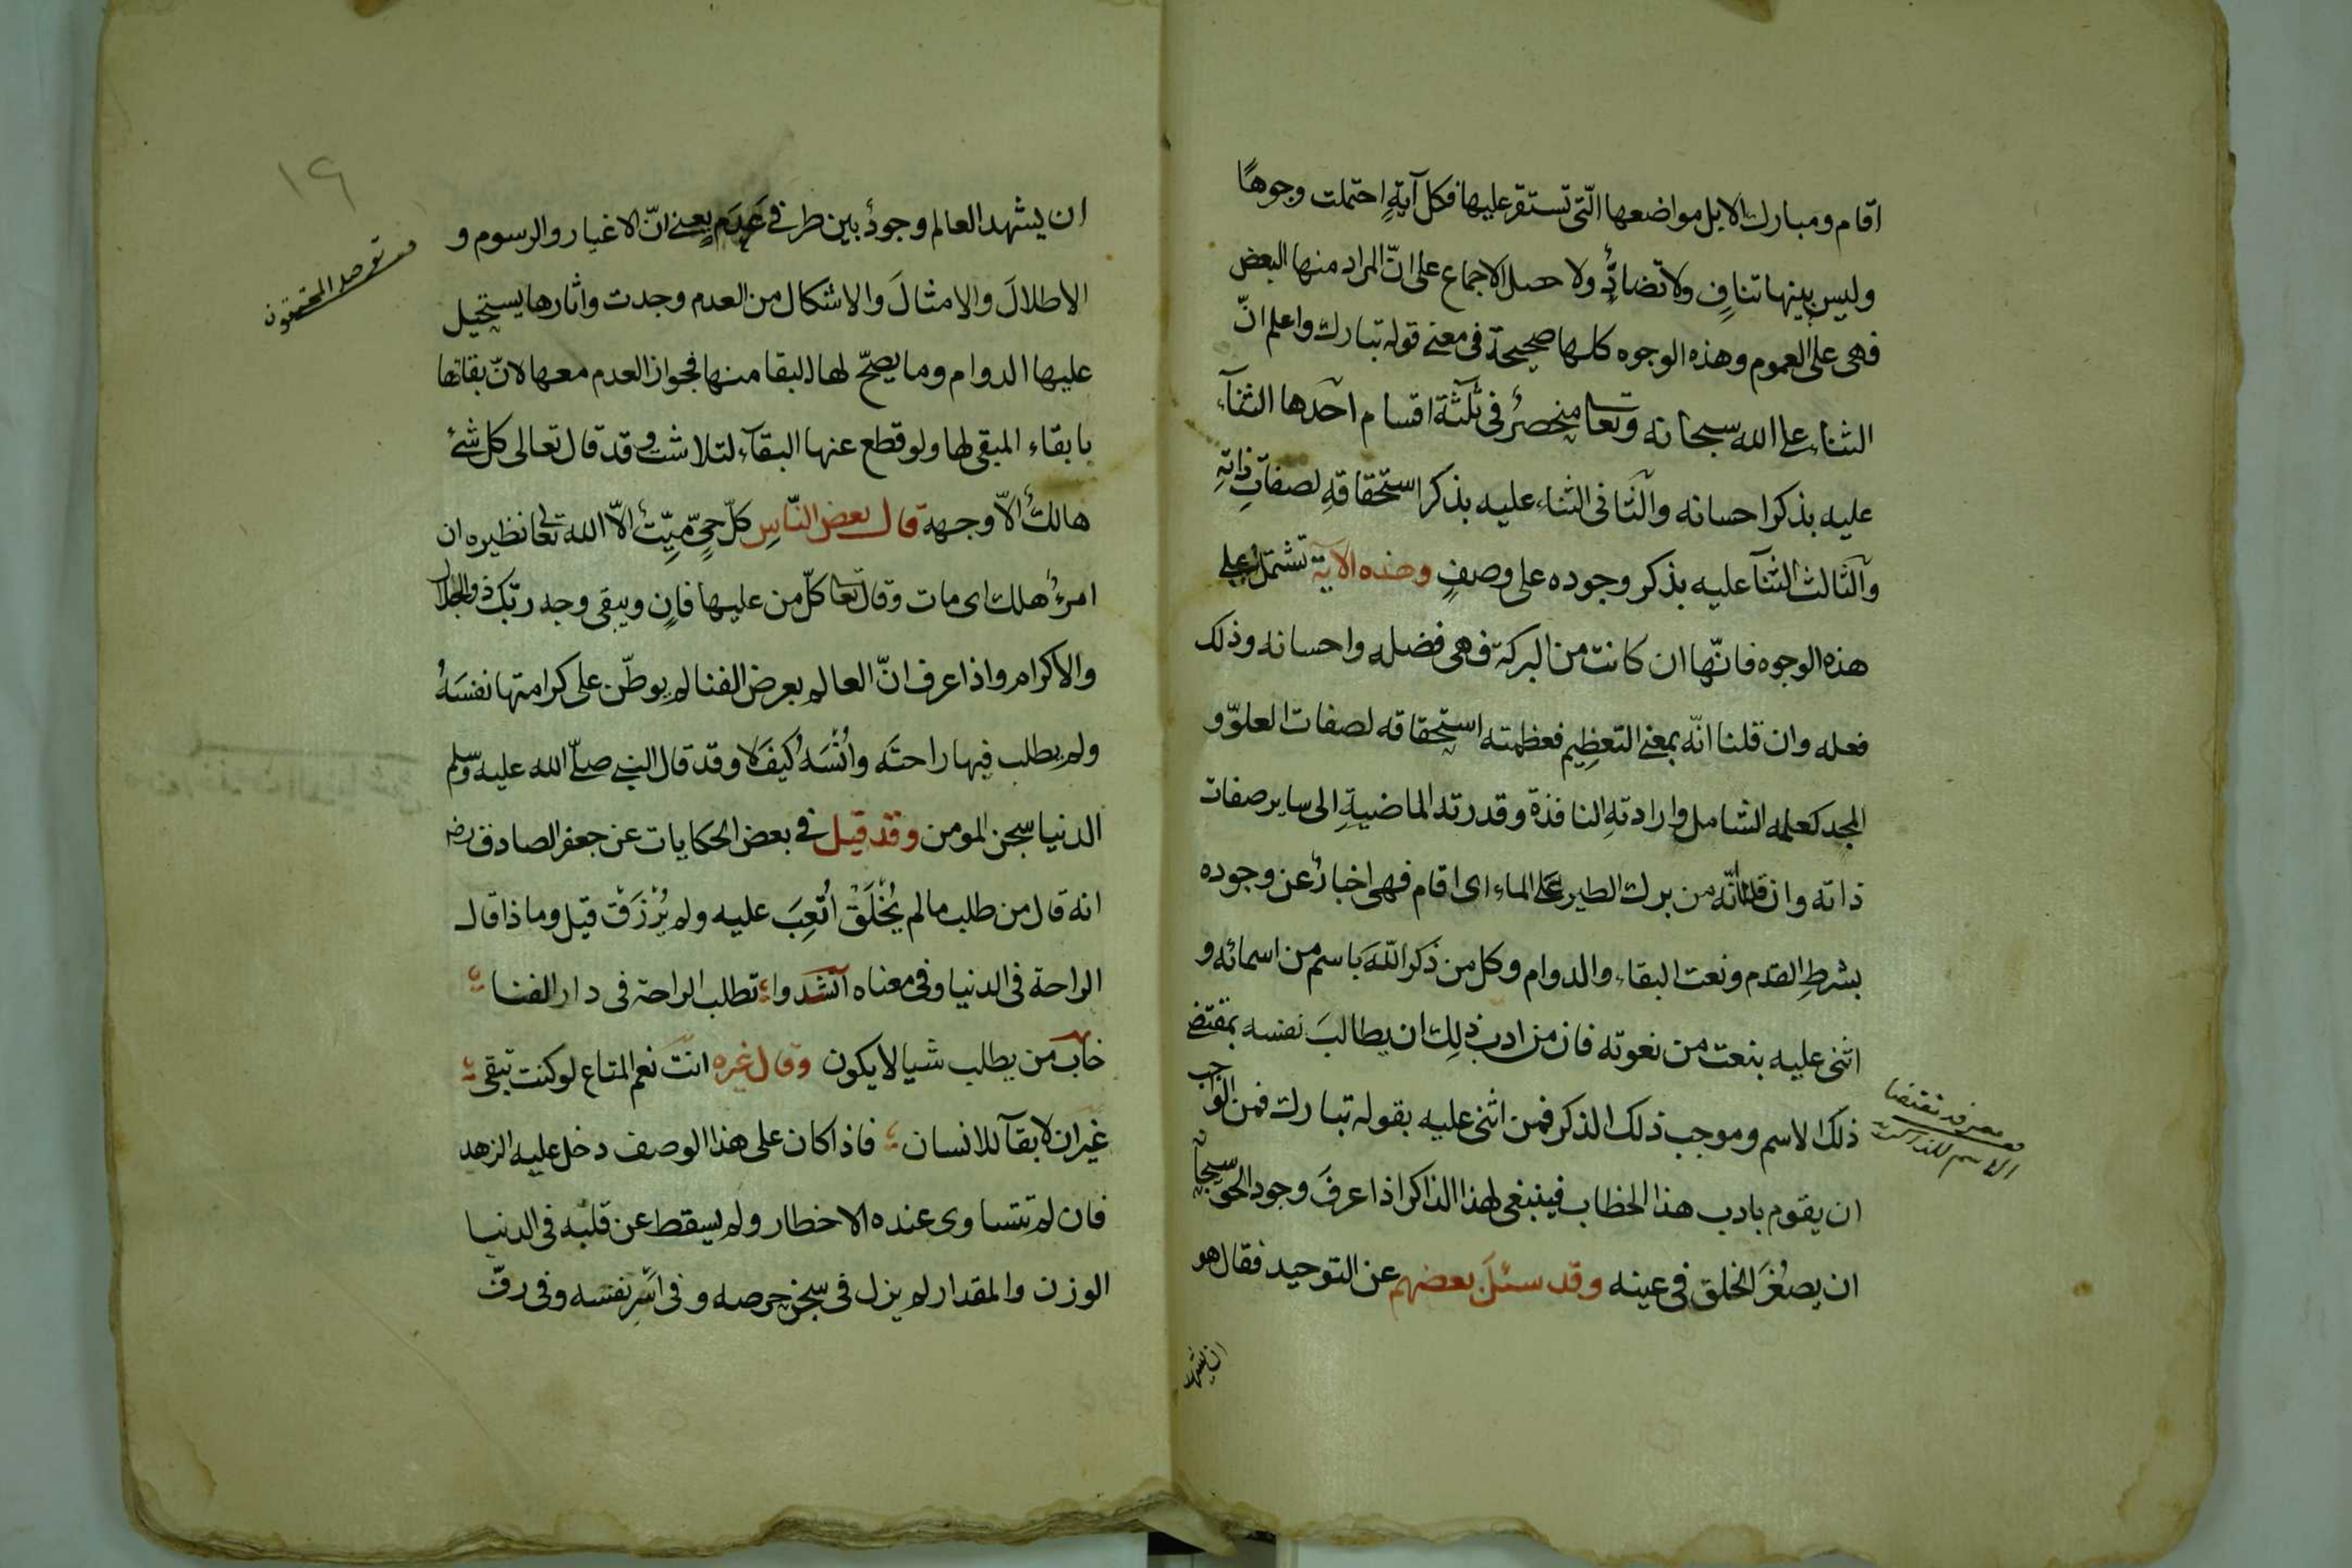 اقام ومبارك الابل مواضعها الّتى تستقر عليها فكل آيةٍ احتملت وجوهًا
وليس بينها تنافٍ ولا تضادٌّ ولا حصل الاجماع على انّ المراد منها البعض
فهى على العموم وهذه الوجوه كلها صحيحة فى معنى قوله تبارك واعلم انّ
الثناء على الله سبحانه وتعا منحصرٌ فى ثلثة اقسام احدها الثنآء
عليه بذكر احسانه والثانى الثناء عليه بذكر استحقاقهِ لصفاتِ ذاتهِ
والثالث الثنآ عليه بذكر وجوده على وصفٍ وهذه الآية تشتمل على
هذه الوجوه فانّها ان كانت من البركة فهى فضله واحسانه وذلك
فعله وان قلنا انّه بمعنى التعظيم فعظمته استحقاقه لصفات العلوّ و
المجد كعلمه الشامل وارادتهِ النافذة وقدرته الماضيةِ الى ساير صفات
ذاته وان قلنا انّه من برك الطير على الماء اى اقام فهى اخبارٌ عن وجوده
بشرطِ القدم ونعت البقاء والدوام وكل من ذكر اللّهَ باسم من اسمائه و
اثنى عليه بنعت من نعوته فان من ادب ذلك ان يطالبَ نفسه بمقتضى
ذلك الاسم وموجب ذلك الذكر فمن اثنى عليه بقوله تبارك فمن الواجب
ان يقوم بادب هذا الخطاب فينبغى لهذا الذاكر اذا عرفَ وجود الحق سبحانه
ان يصغُرَ الخلق فى عينه وقد سئلَ بعضهم عن التوحيد فقال هو
الاسم للذاكر
ان يشهد
١٩
ان يشهد العالم وجودٌ بين طرفى عَدَم يعنى انّ الاغيار والرسوم و
الاطلالَ والامثالَ والاشكال من العدم وجدت واثارها يستحيل
عليها الدوام وما يصحّ لها البقا منها فجواز العدم معها لانّ بقاتها
بابقاء المبقى لها ولو قطع عنها البقآء لتلاشت وقد قال تعالى كل شئ
هالكٌ الّا وجهه قال بعض النّاسِ كلّ حىٍّ ميّتٌ الّا الله تعا نظيره ان
امرءٌ هلك اى مات وقال تعا كلّ من عليها فانٍ ويبقى وجه ربّك ذو الجلال
والاكرام واذا عرف انّ العالم بعرض الفنا لم يوطّن على كرامتها نفسَهُ
ولم يطلب فيها راحتَه واُنْسَهُ كيفَ لا وقد قال النبى صلّى الله عليه وسلم
الدنيا سجن المومن وقد قيل فى بعض الحكايات عن جعفر الصادق رضه
انه قال من طلب ما لم يُخْلَقْ اُتْعِبَ عليه ولم يُرْزَقْ قيل وما ذا قال
الراحة فى الدنيا وفى معناه انشدوا تطلب الراحة فى دار الفنا
خاب من يطلب شيا لا يكون وقال غيره انتَ نعم المتاع لو كنت تبقى
غير ان لا بقآ للانسان فاذا كان على هذا الوصف دخل عليه الزهد
فان لم تتساوى عنده الاخطار ولم يسقط عن قلبه فى الدنيا
الوزن والمقدار لم يزل فى سجن حرصه وفى اسْرِ نفسه وفى رقّ